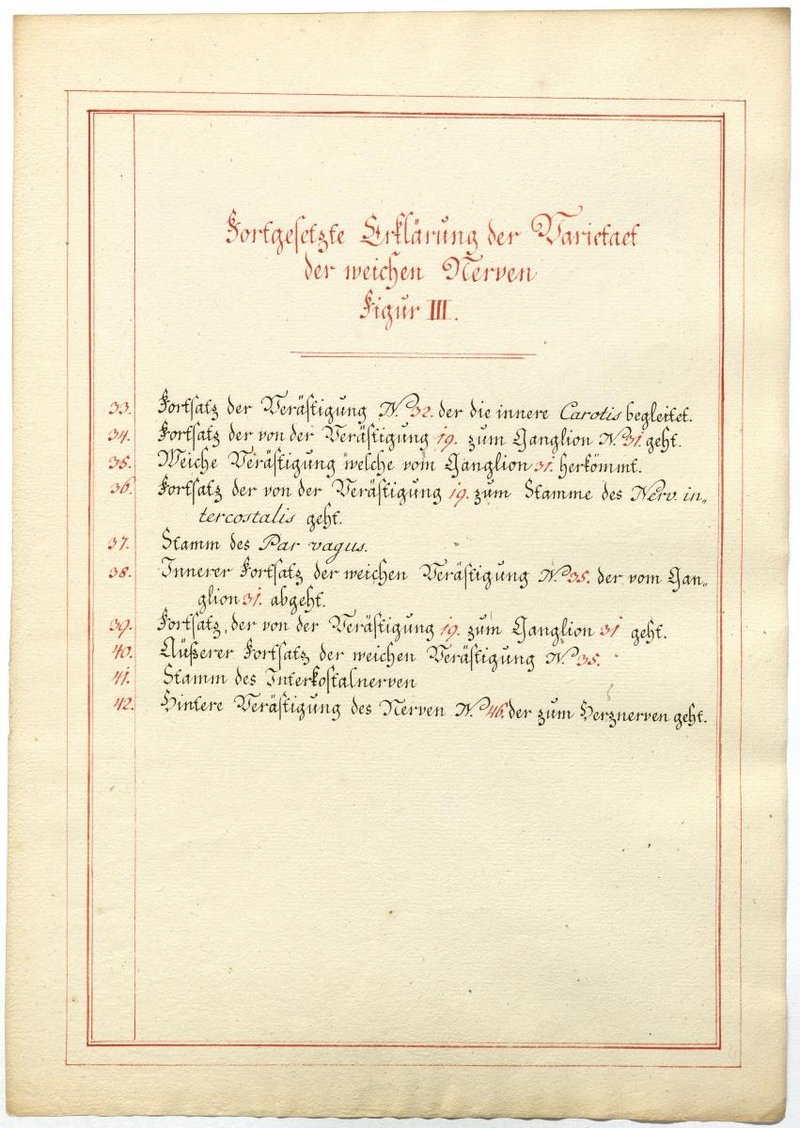 Fortgesetzte Erklärung der Varietaet
der weichen Nerven
Figur III.
33. Fortsatz der Verästigung N.º 32. der die innere Carotis begleitet.
34. Fortsatz der von der Verästigung 19. zum Ganglion N.º 31. geht.
35. Weiche Verästigung welche vom Ganglion 31. herkömmt.
36. Fortsatz der von der Verästigung 19. zum Stamme des Nerv. in„
tercostalis geht.
37. Stamm des Par vagus.
38. Innerer Fortsatz der weichen Verästigung N.º 35. der vom Gan„
glion 31. abgeht.
39. Fortsatz, der von der Verästigung 19. zum Ganglion 31 geht.
40. Äußerer Fortsatz der weichen Verästigung N.º 35.
41. Stamm des Interkostalnerven
42. Hintere Verästigung des Nerven N.º 46. der zum Herznerven geht.